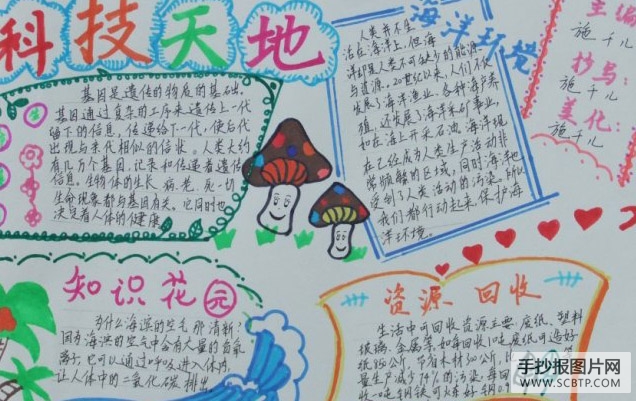 科技天地
基因是遗传的物质的基础,
基因通过复杂的工序来遗传上一代
留下的信息,传递给下一代,使后代
出现与亲代相似的信状。人类大约
有几万个基因,记录和传递着遗传
信息。生物体的生长、病、老、死一切
生命现象都与基因有关。它同时也
决定着人体的健康
海洋环境
人类并不生
活在海洋上,但海
洋却是人类不可缺少的能源
与资源。20世纪以来,人们不仅
发展了海洋渔业、各种海产养
殖,还发展了海洋采矿事业,
如在海上开采石油。海洋现
在已经成为人类生产活动非
常频繁的区域,同时海洋也
受到了人类活动的污染。所以
我们都行动起来,保护海
洋环境。
主编
施千儿
抄写:
施千儿
美化:
施千儿
知识花园
为什么海滨的空气那清新?
因为海滨的空气中含有大量的负氧
离子,它可以通过呼吸进入体内,
让人体中的二氧化碳排出
资源回收
生活中可回收资源主要废纸、塑料
玻璃、金属等,如每回收1吨废纸可造好
纸850公斤,节省木材300公斤,
量生产减少74%的污染;每回
收一吨钢铁可炼好钢0.9
手抄报图片网
WWW.SCBTP.COM